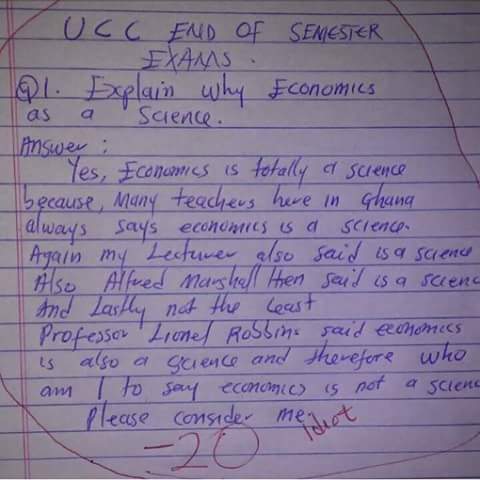 UCC END OF SEMESTER
EXAMS.
Q1. Explain why Economics
as a Science.
Answer:
Yes, Economics is totally a science
because, Many teachers here in Ghana
always says economics is a science.
Again my Lecturer also said is a science
Also Alfred Marshall then said is a scienc
And Lastly not the least
Professor Lionel Robbins said economics
is also a science and therefore who
am I to say economics is not a scienc
Please consider me.
idiot
-20